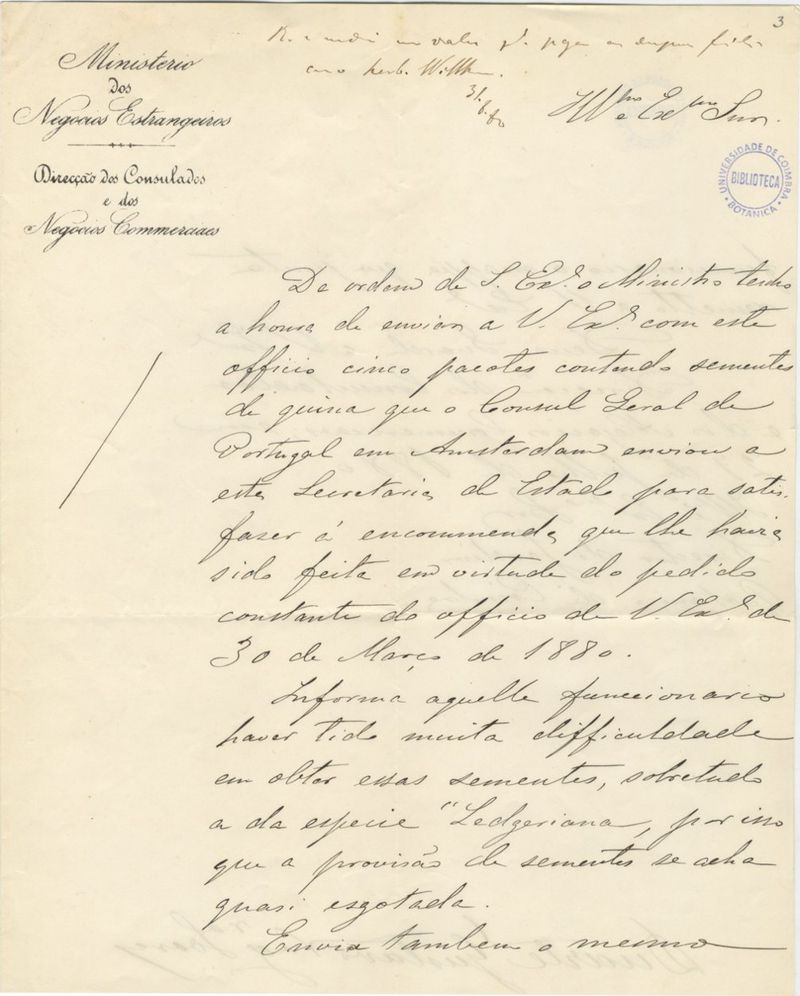 3
Ministerio
dos
Negocios Estrangeiros
Direcção dos Consulados
e dos
Negocios Commerciaes
Ill.mo e Ex.mo Snr.
UNIVERSIDADE DE COIMBRA
BIBLIOTECA
BOTANICA
De ordem de S. Ex.ª o Ministro tenho
a honra de enviar a V. Ex.ª com este
officio cinco pacotes contendo sementes
de quina que o Consul Geral de
Portugal em Amsterdam enviou a
esta Secretaria de Estado para satis-
fazer á encommenda que lhe havia
sido feita em virtude do pedido
constante do officio de V. Ex.ª de
30 de Março de 1880.
Informa aquelle funccionario
haver tido muita difficuldade
em obter essas sementes, sobretudo
a da especie "Ledgeriana, por isso
que a provisão de sementes se acha
quasi esgotada.
Envia tambem o mesmo